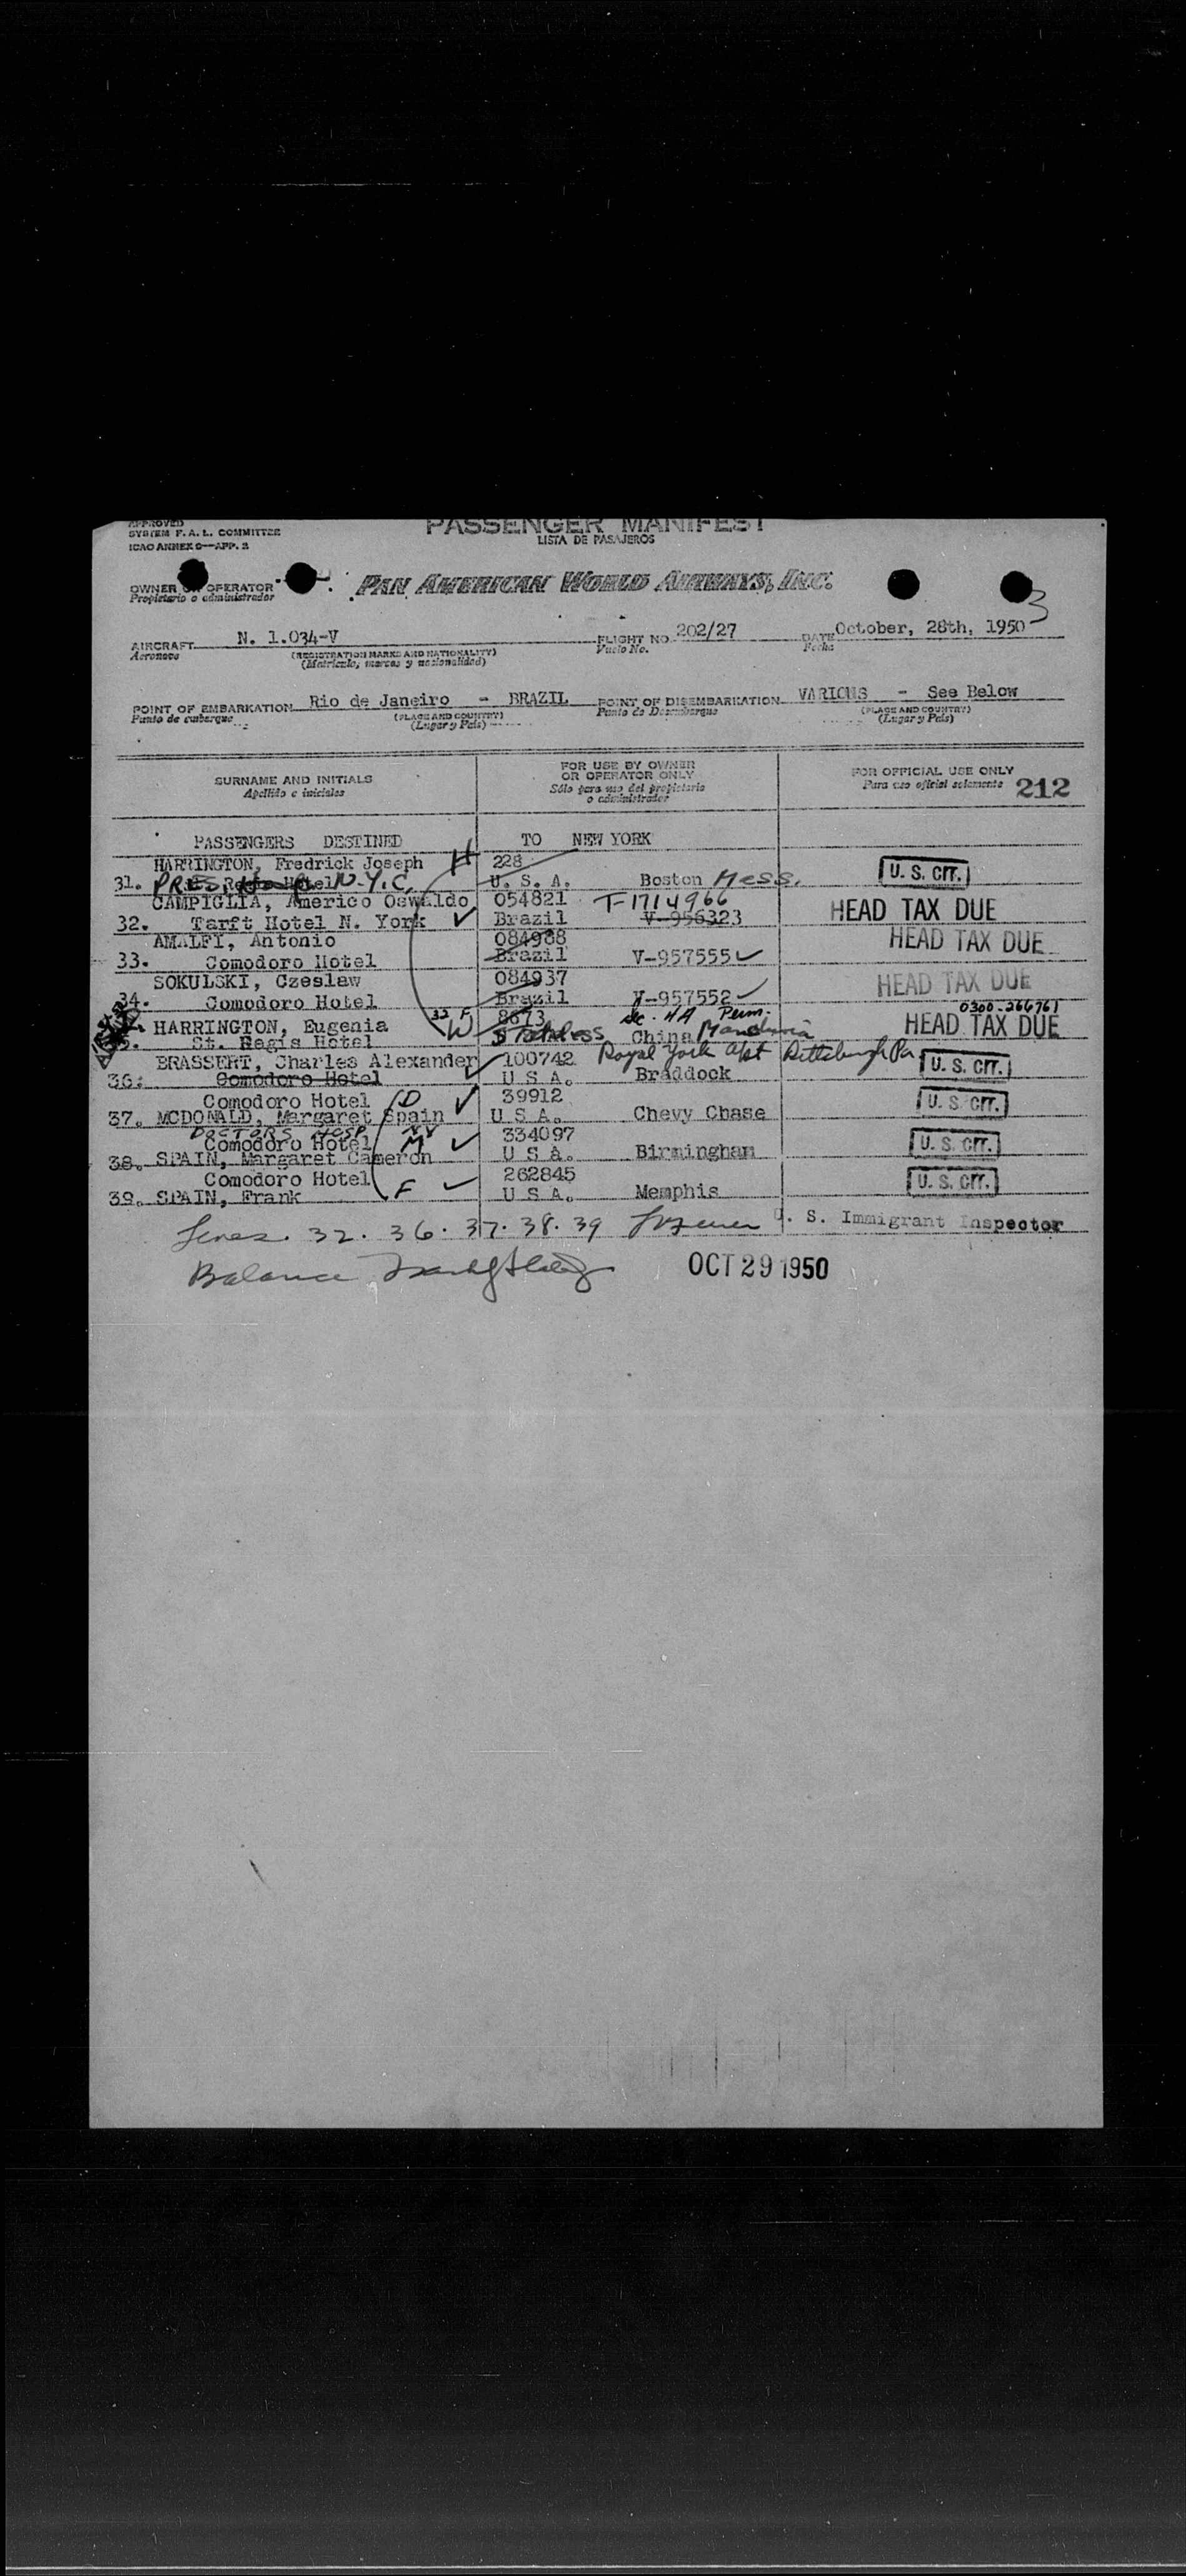 APPROVED
SYSTEM F. A. L. COMMITTEE
ICAO ANNEX 9—APP. 2
PASSENGER MANIFEST
LISTA DE PASAJEROS
OWNER OR OPERATOR
Propietario o administrador
PAN AMERICAN WORLD AIRWAYS, INC.
3
AIRCRAFT N. 1.034-V FLIGHT NO. 202/27 DATE October, 28th, 1950
Aeronave (REGISTRATION MARKS AND NATIONALITY) Vuelo No. Fecha
(Matrícula, marcas y nacionalidad)
POINT OF EMBARKATION Rio de Janeiro - BRAZIL POINT OF DISEMBARKATION VARIOUS - See Below
Punto de embarque (PLACE AND COUNTRY) Punto de Desembarque (PLACE AND COUNTRY)
(Lugar y País) (Lugar y País)
SURNAME AND INITIALS
Apellido e iniciales
FOR USE BY OWNER
OR OPERATOR ONLY
Sólo para uso del propietario
o administrador
FOR OFFICIAL USE ONLY
Para uso oficial solamente 212
PASSENGERS DESTINED TO NEW YORK
HARRINGTON, Fredrick Joseph H 228
31. PRES. Hotel N.Y.C. U. S. A. Boston Mass. U. S. CIT.
CAMPIGLIA, Americo Oswaldo 054821 T-1714966
32. Tarft Hotel N. York ✓ Brazil V-956323 HEAD TAX DUE
AMALFI, Antonio 084988 HEAD TAX DUE
33. Comodoro Hotel Brazil V-957555 ✓
SOKULSKI, Czeslaw 084937 HEAD TAX DUE
34. Comodoro Hotel Brazil V-957552 ✓
32 F W 8673 Sec. 4A Perm. 0300-266761
HARRINGTON, Eugenia Stateless China Manchuria HEAD TAX DUE
35. St. Regis Hotel
BRASSERT, Charles Alexander ✓ 100742 Royal York Apt Pittsburgh Pa.
36. Comodoro Hotel U S A. Braddock U. S. CIT.
Comodoro Hotel D ✓ 39912 U. S. CIT.
37. MCDONALD, Margaret Spain U S A. Chevy Chase
DOCTORS HOSP NY
Comodoro Hotel M ✓ 334097 U. S. CIT.
38. SPAIN, Margaret Cameron U S A. Birmingham
Comodoro Hotel F ✓ 262845 U. S. CIT.
39. SPAIN, Frank U S A. Memphis
Lines. 32. 36. 37. 38. 39 U. S. Immigrant Inspector
Balance OCT 29 1950